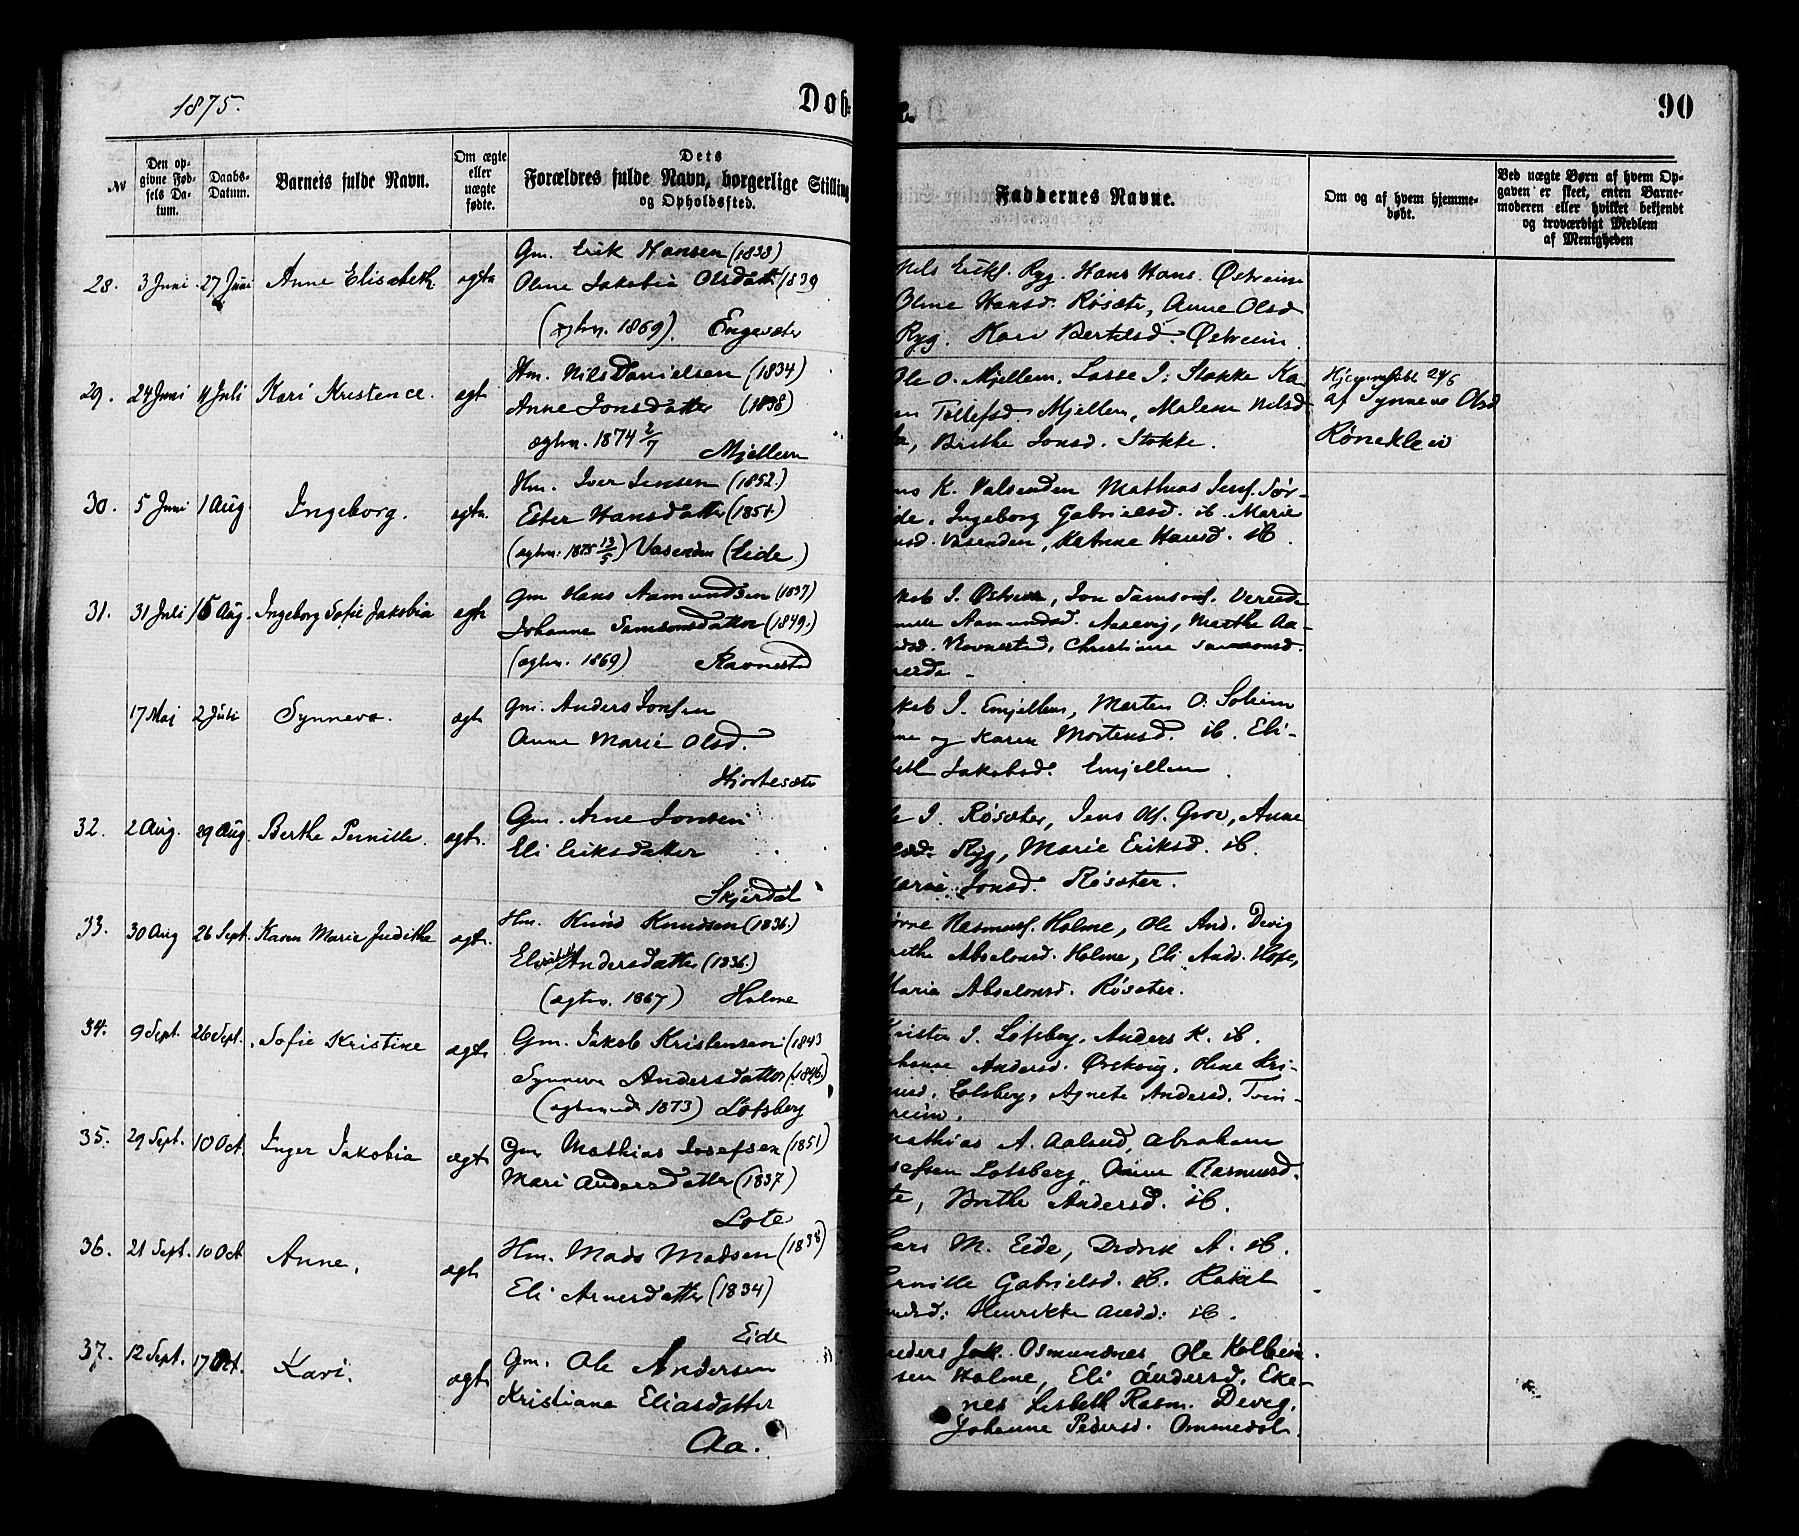 1875.
Døb
90
№
Den opgivne Fødsels Datum.
Daabs-Datum.
Barnets fulde Navn.
Om ægte eller uægte fødte.
Dets Forældres fulde Navn, borgerlige Stilling og Opholdssted.
Faddernes Navne.
Om og af hvem hjemmedøbt.
Ved uægte Børn af hvem Opgaven er skeet, enten Barnemoderen eller hvilket bekjendt og troværdigt Medlem af Menigheden
28. 3 Juni 27 Juni Anne Elisabeth ægte
Gm. Erik Hansen (1838)
Oline Jakobia Olsdatter (1839
(ægtev. 1869). Engesæter
Nils Eriks. Ryg. Hans Hans. Østreim
Oline Hansd. Røsæter, Anne Olsd
Ryg. Kari Bertelsd. Østreim.
29. 24 Juni 11 Juli Kari Kristence. ægte
Hm. Nils Danielsen (1834)
Anne Jonsdatter (1838)
ægtev. 1874 2/7 Mjellem
Ole O. Mjellem, Lasse I. Stokke Ka-
en Tollefsd. Mjellem, Malene Nilsd
Brithe Jonsd. Stokke.
Hjemmedøbt 24/6
af Synneve Olsd
Røneklev
30. 5 Juni 1 Aug. Ingeborg. ægte.
Hm. Iver Jensen (1852.)
Ester Hansdatter (1851.)
(ægtev. 1875 13/5) Vasenden (Eide.)
K. Vasenden Mathias Jens. Sør-
ide, Ingeborg Gabrielsd. ib. Marie
Vasenden, KaAnne Hansd. ib.
31. 31 Juli 15 Aug. Ingeborg Sofie Jakobia ægte
Gm Hans Aamundsen (1837)
Johanne Samsonsdatter (1849.)
(ægtev. 1869) Ravnestad
kob I. Østreim, Jon Samsons. Vereide
Aamundsd. Aasevig, Marthe Aa-
Ravnestad, Christiane Samsonsd.
17 Maj 2 Juli Synneva. ægte
Gm. Anders Jonsen
Anne Marie Olsd.
Hjortesæter
kob I. Emjellem, Morten O. Soleim
ne og Karen Mortensd. ib. Eli-
beth Jakobsd. Emjellem.
32. 2 Aug. 29 Aug. Berthe Pernille. ægte.
Gm. Arne Jonsen
Eli Eriksdatter
Skjerdal
e I. Røsæter, Jens Ols. Grov, Anne
Ryg, Marie Eriksd. ib.
Marie Jonsd. Røsæter.
33. 30 Aug 26 Sept. Karen Marie Judithe ægte.
Hm. Knud Knudsen (1836.)
Elisabeth Andersdatter (1836.)
(ægtev. 1867) Holme
Rasmuss. Holme, Ole And. Devig
Brithe Absalonsd. Holme, Eli Ands. Hope,
Maria Absalonsd. Røsæter.
34. 9 Sept. 26 Sept. Sofie Kristine ægte
Gm. Jakob Kristensen (1843
Synneva Andersdatter (1846.)
(ægteviede 1873) Lotsberg
Kristen I. Lotsberg, Anders K. ib.
Johanne Andersd. Ørskoug, Oline Kri-
Lotsberg, Agnete Andersd. Tvin-
reim.
35. 29 Sept. 10 Oct. Inger Jakobia ægte
Gm Mathias Josefsen (1851)
Mari Andersdatter (1837)
Lote
Mathias A. Aaland, Abraham
sefsen Lotsberg, Anne Rasmusd.
te, Brithe Andersd. ib.
36. 21 Sept. 10 Oct Anne, ægte
Hm. Mads Madsen (1838)
Eli Arnesdatter (1834)
Eide
Lars M. Eide, Didrik A. ib.
Pernille Gabrielsd. ib. Rakel
Henrikke Andd. ib.
37. 12 Sept. 17 Oct. Kari. ægte
Gm. Ole Andersen
Kristiane Eliasdatter
Aa.
neders Jak. Osmundnes Ole Kolbein
sen Holme, Eli Andersd. Eke-
nes Lisbeth Rasm. Devig.
Johanne Pedersd. Ommedal.